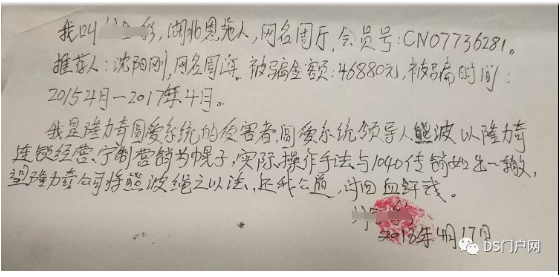 我叫 彩,湖北恩施人,网名周厅,会员号:CN07736281。
推荐人:沈阳刚,网名周涛。被骗金额:46880元,被骗时间:
2015年4月一2017年4月。
我是隆力奇圆爱系统的受害者,圆爱系统领导人熊波以隆力奇
连锁经营、宁制营销为幌子,实际操作手法与1040传销如出一辙,
望隆力奇公司将熊波绳之以法,还我公道,讨回血钎戋。
2018年4月17日
DS门户网